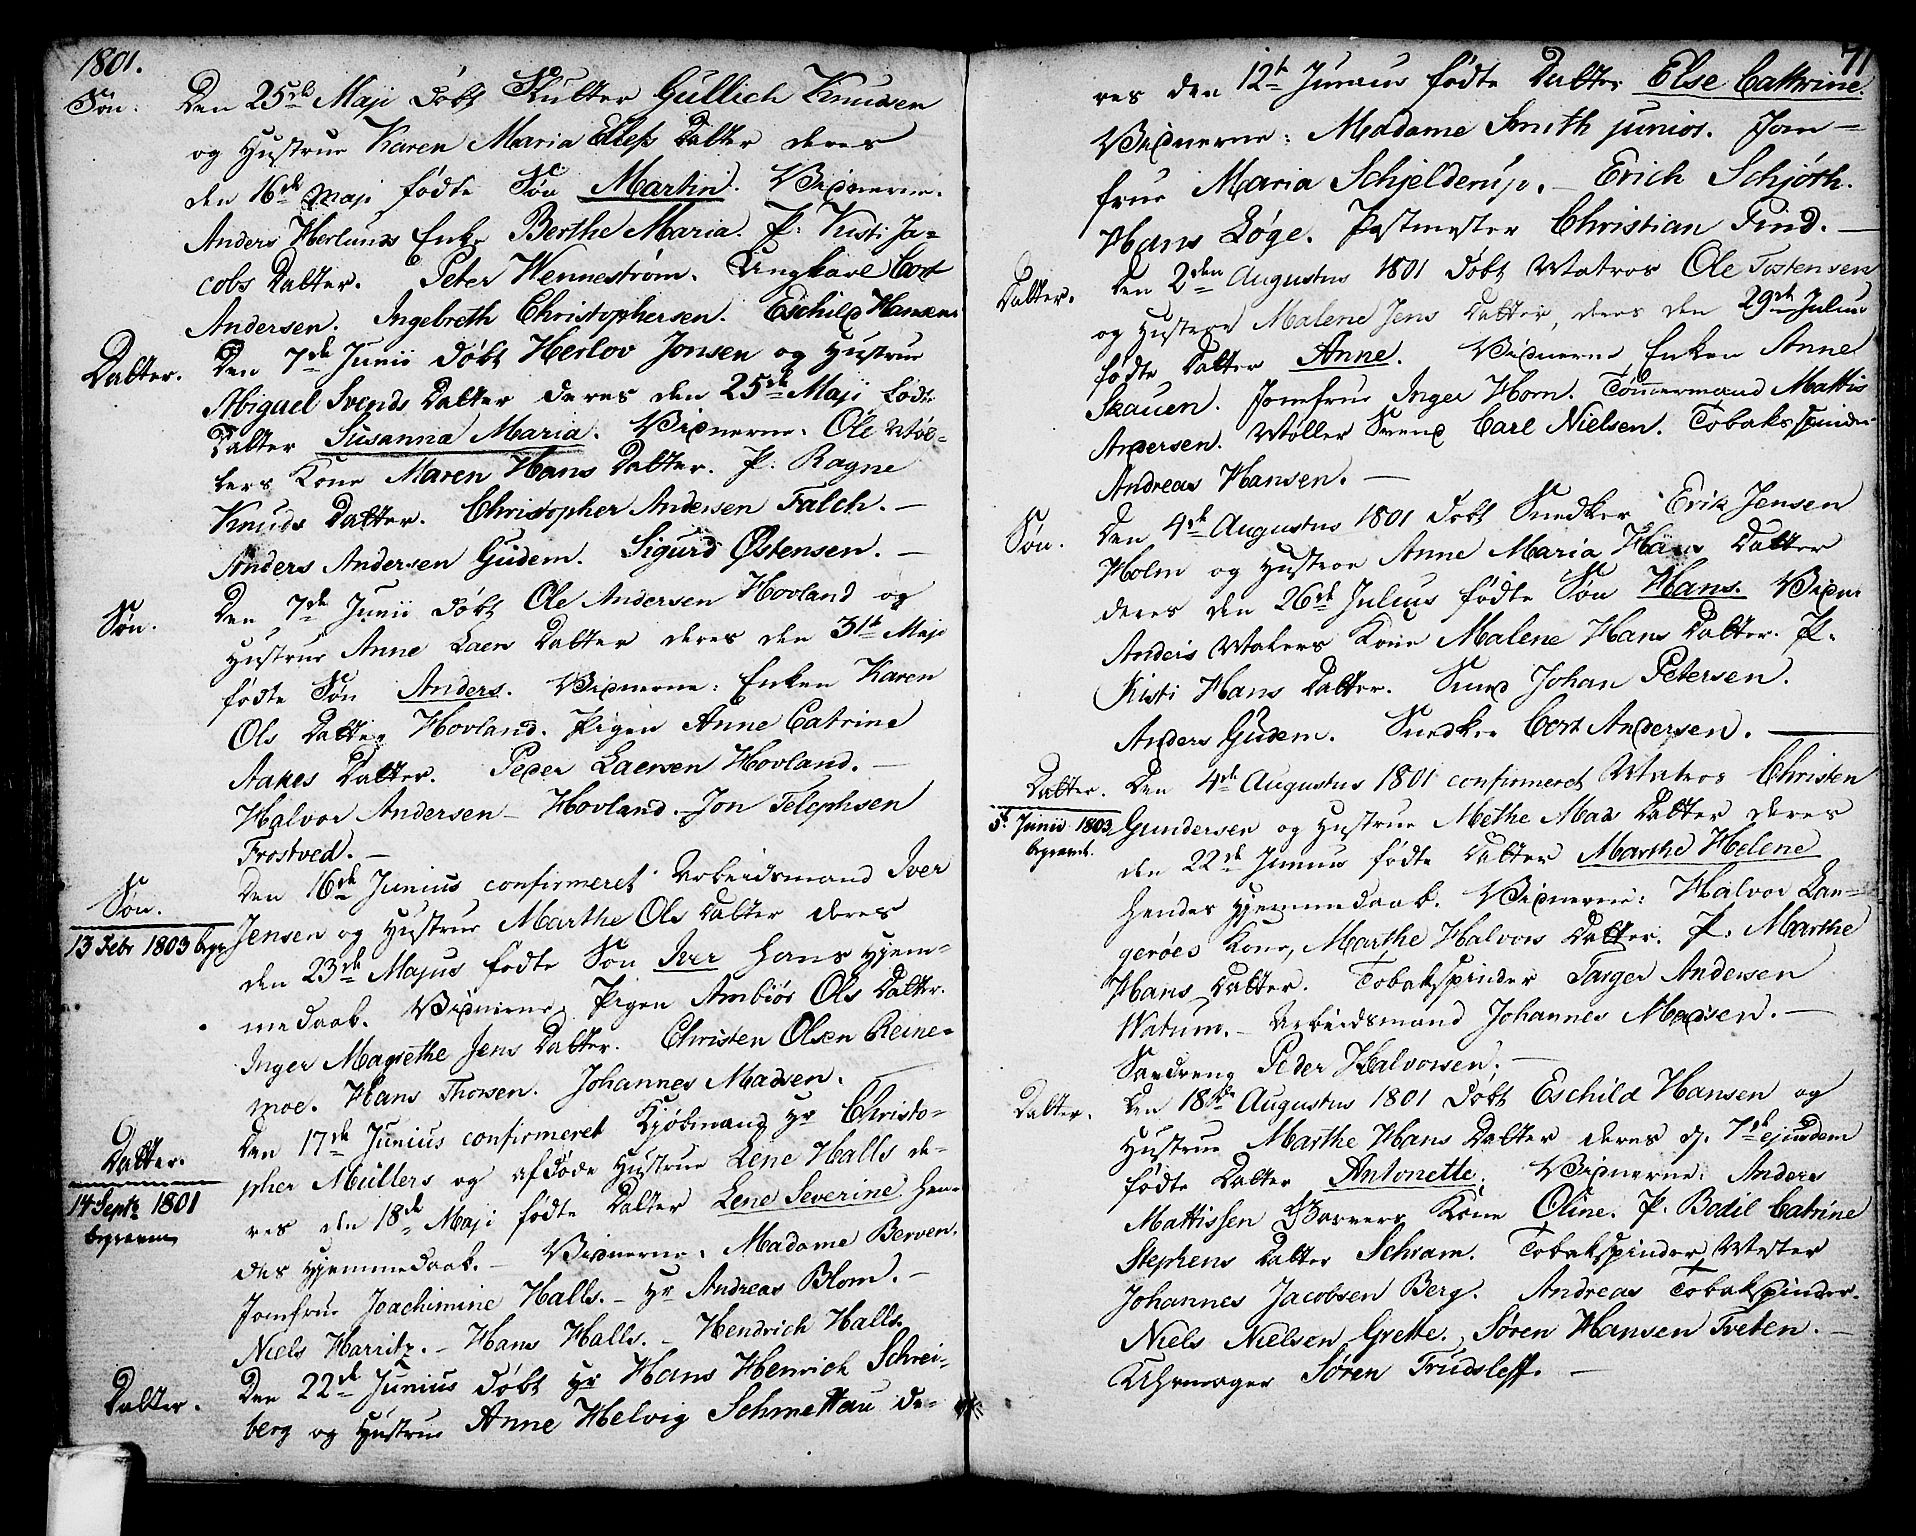 1801.
Søn. Den 25de Maji Døbt Skulter Gullich Knudsen
og Hustrue Karen Maria Ellefs Datter deres
den 16de Maji fødte Søn Martin. Vidnerne:
Anders Herlunds Enke Berthe Maria. P. Kisti Ja-
cobs Datter. Peter Wennestrøm. Ungkarl Cort
Andersen. Ingebreth Christophersen. Eschild Hansen
Datter. Den 7de Junii Døbt Herlov Jonsen og Hustrue
Abigael Svends Datter deres den 25de Maji fødte
Datter Susanna Maria. Vidnerne: Ole Møl-
lers Kone Maren Hans Datter. P. Ragne
Knuds Datter. Christopher Andersen Falch. -
Anders Andersen Gudem. Sigurd Østensen. -
Søn. Den 7de Junii Døbt Ole Andersen Hovland og
Hustrue Anne Laers Datter deres den 31te Maji
fødte Søn Anders. Vidnerne: Enken Karen
Ols Datter Hovland. Pigen Anne Catrine
Aakes Datter. Peder Laersen Hovland. -
Halvor Andersen - Hovland. Jon Telephsen
Frostved. -
Søn. Den 16de Junius confirmeret Arbeidsmand Iver
13 Febr 1803 begr. Jensen og Hustrue Marthe Ols Datter deres
den 23de Majus fødte Søn Iver hans Hjem-
medaab. Vidnerne, Pigen Ambiør Ols Datter.
Inger Magrethe Jens Datter. Christen Olsen Reine-
moe. Hans Thorsen. Johannes Madsen.
Datter. Den 17de Junius confirmeret Kjøbmand Hr Christo-
pher Müllers og afdøde Hustrue Lene Halls de-
14 Septr 1801 res den 18de Maji fødte Datter Lene Severine hen-
begraven des Hjemmedaab. - Vidnerne: Madame Berven.
Jomfrue Joachimine Halls. - Hr Andreas Blom. -
Niels Harritz. - Hans Halls. - Hendrich Halls.
Datter. Den 22de Junius Døbt Hr Hans Henrich Schrei-
berg og Hustrue Anne Helvig Schmettau de-
71
res den 12te Junius fødte Datter Else Cathrine.
Vidnerne: Madame Smith junior. Jom-
frue Maria Schjelderup. - Erich Schjøth.
Hans Løge. Postmester Christian Find. -
Datter. Den 2den Augustus 1801 Døbt Matros Ole Tostensen
og Hustrue Malene Jens Datter, deres den 29de Julius
fødte Datter Anne. Vidnerne Enken Anne
Skauen. Jomfrue Inger Horn. Tømmermand Mattis
Andersen. Møller Svend Carl Nielsen. Tobakspinder
Andreas Hansen. -
Søn. Den 4de Augustus 1801 Døbt Snedker Erik Jensen
Holm og Hustrue Anne Maria Hans Datter
deres den 26de Julius fødte Søn Hans. Vidne
Anders Malers Kone Malene Hans Datter. P.
Kisti Hans Datter. Smed Johan Petersen.
Anders Gudem. Snedker Cort Andersen. -
Datter. Den 4de Augustus 1801 confirmeret Matros Christen
5t Junii 1803 Gundersen og Hustrue Methe Mads Datter deres
begravet. den 22de Junius fødte Datter Marthe Helene
hendes Hjemmedaab. Vidnerne: Halvor Lan-
gerøes Kone, Marthe Halvors Datter. P. Marthe
Hans Datter. Tobakspinder Targer Andersen
Watum. - Arbeidsmand Johannes Madsen. -
Peder Halvorsen. -
Datter. Den 18de Augustus 1801 Døbt Eschild Hansen og
Hustrue Marthe Hans Datter deres d. 7de ejusdem
fødte Datter Antonette. Vidnerne: Anders
Mattissen Garvers Kone Oline. P. Bodil Catrine
Stephens Datter Schram. Tobakspinder Mester
Johannes Jacobsen Berg. Andreas Tobakspinder.
Niels Nielsen Grette. Søren Hansen Tveten. -
Uhrmager Søren Trudsleff. -